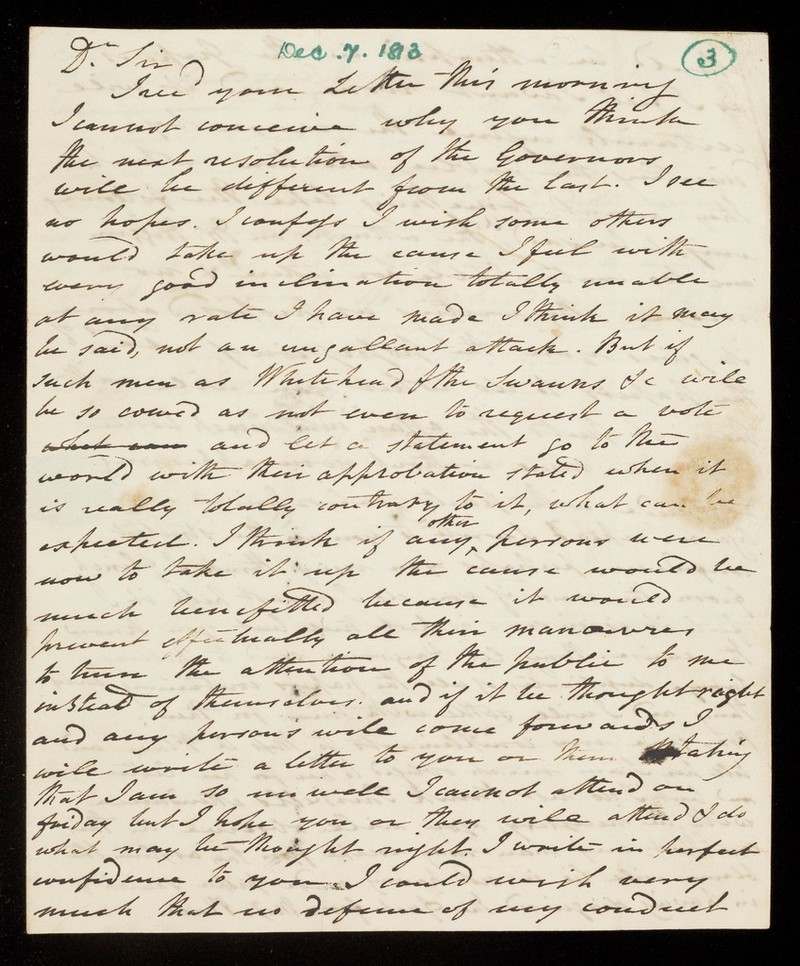 Dec. 7. 1813
3
Dr Sir
I recd your Letter this morning
I cannot conceive why you think
the next resolution of the Governors
will be different from the last. I see
no hopes. I confess I wish some others
would take up the cause I feel with
every good inclination totally unable
at any rate I have made I think it may
be said, not an ungallant attack. But if
such men as Whitehead & the Swanns &c will
be so cowed as not even to request a vote
what can and let a statement go to the
world with their approbation stated when it
is really totally contrary to it, what can be
expected. I think if any other persons were
now to take it up the cause would be
much benefitted because it would
prevent effectually all their manœuvres
to turn the attention of the public to me
instead of themselves. and if it be thought right
and any persons will come forwards I
will write a letter to you or them stating
that I am so unwell I cannot attend on
friday but I hope you or they will attend & do
what may be thought right. I write in perfect
confidence to you. I could wish very
much that no defence of my conduct